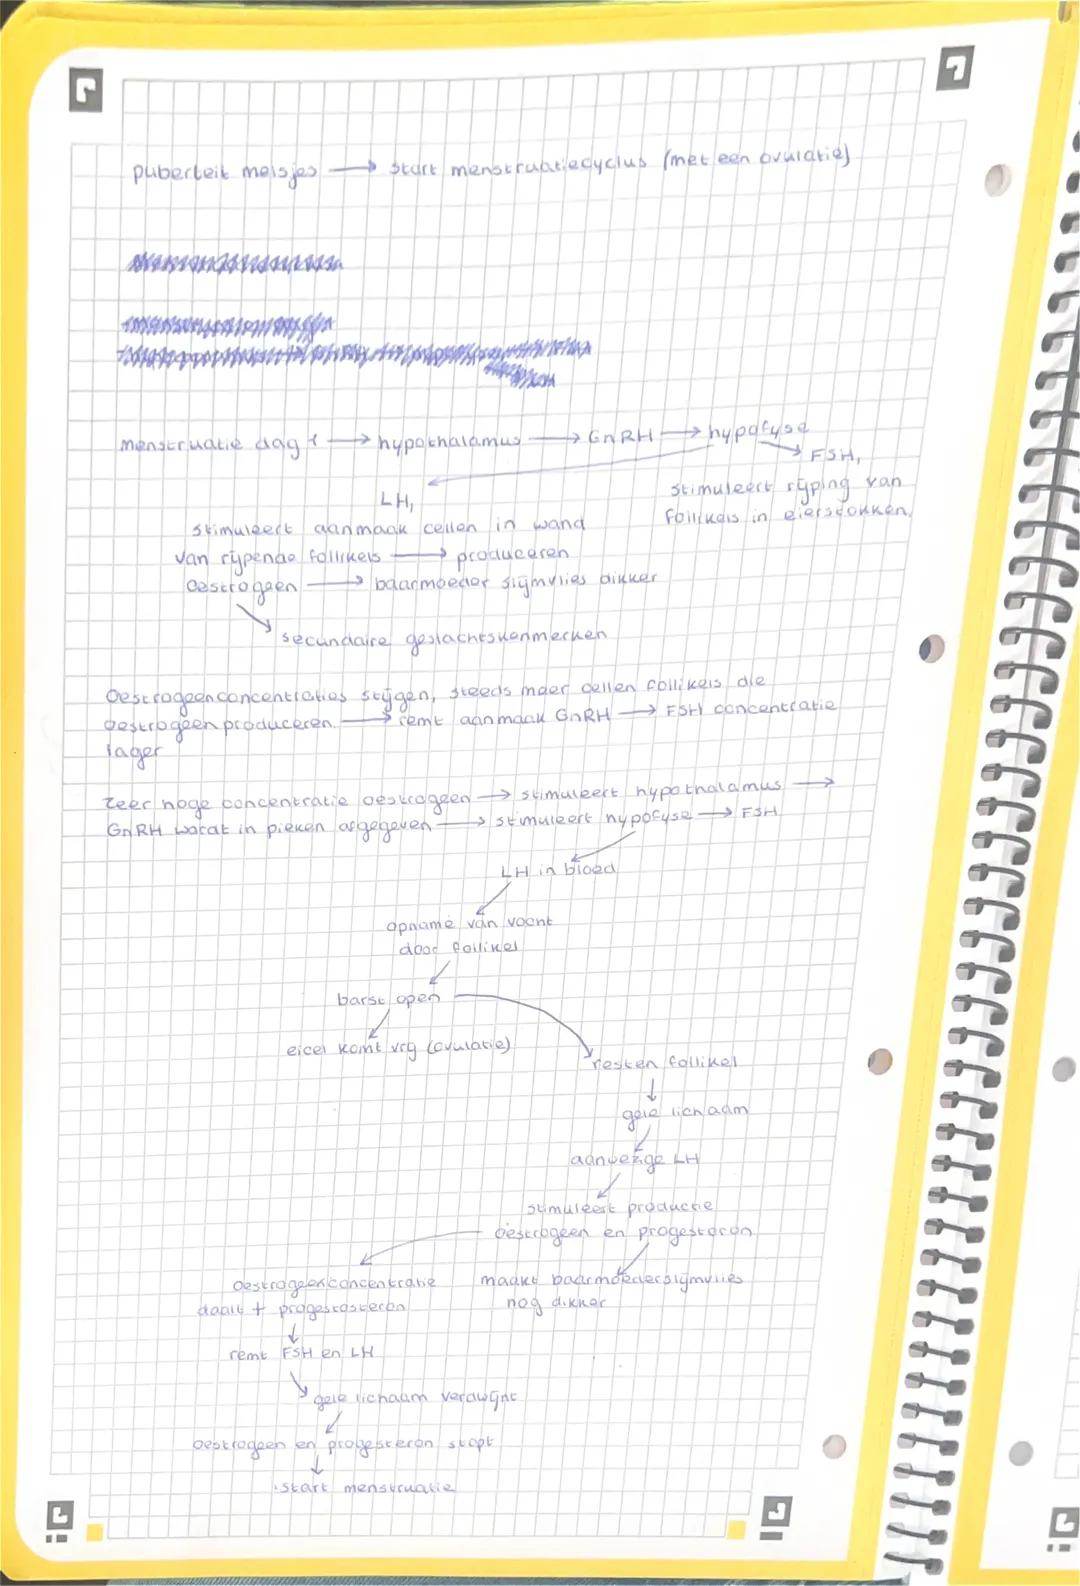 puberteit meisjes → start menstruatiecyclus (met een ovulatie)
menstruatie dag 1 → hypothalamus → GnRH → hypofyse
FSH,
stimuleert rijping van
follikels in eierstokken.
LH,
stimuleert aanmaak cellen in wand
van rijpende follikels → produceren
oestrogeen → baarmoeder slijmvlies dikker
secundaire geslachtskenmerken
Oestrogeenconcentraties stijgen, steeds meer cellen follikels die
oestrogeen produceren. → remt aanmaak GnRH → FSH concentratie
lager
zeer hoge concentratie oestrogeen → stimuleert hypothalamus →
GnRH wordt in pieken afgegeven → stimuleert hypofyse → FSH
LH in bloed
opname van vocht
door follikel
barst open
eicel komt vrij (ovulatie)
resten follikel
↓
gele lichaam
aanwezige LH
stimuleert productie
oestrogeen en progesteron
oestrogeenconcentratie
daalt + progestosteron
maakt baarmoederslijmvlies
nog dikker
↓
remt FSH en LH
gele lichaam verdwijnt
oestrogeen en progesteron stopt
↓
start menstruatie